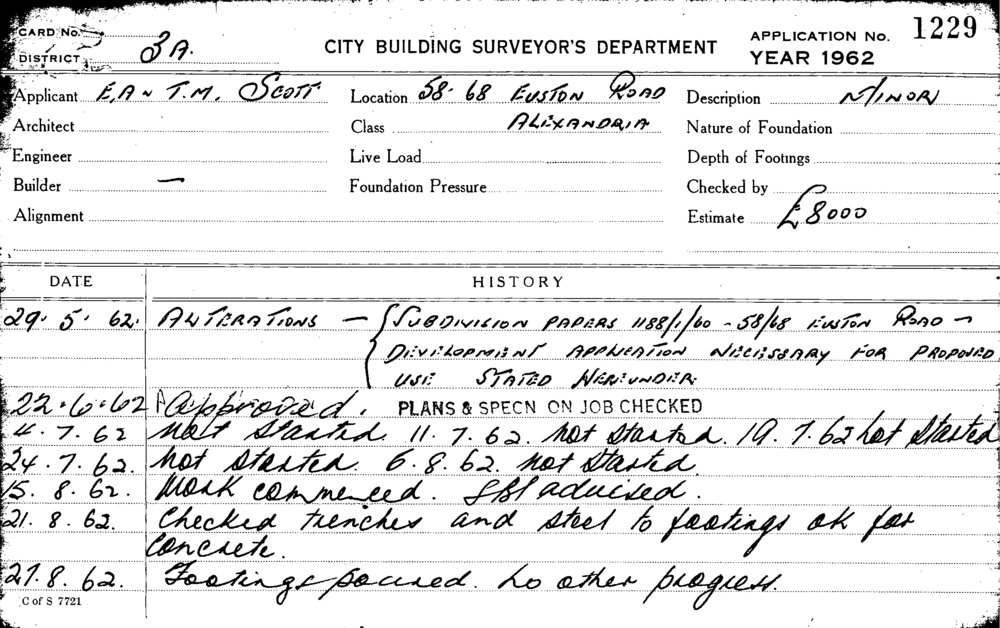 CARD No.
DISTRICT 3A.
CITY BUILDING SURVEYOR'S DEPARTMENT
APPLICATION No. 1229
YEAR 1962
Applicant E, A & T.M. SCOTT Location 58-68 EUSTON ROAD Description MINOR
Architect Class ALEXANDRIA Nature of Foundation
Engineer Live Load Depth of Footings
Builder — Foundation Pressure Checked by
Alignment Estimate £8000
DATE HISTORY
29. 5. 62. ALTERATIONS — SUBDIVISION PAPERS 1188/1/60 - 58/68 EUSTON ROAD —
DEVELOPMENT APPLICATION NECESSARY FOR PROPOSED
USE STATED HEREUNDER.
22.6.62 Approved. PLANS & SPECN ON JOB CHECKED
4. 7. 62 Not started. 11. 7. 62. Not started. 19. 7. 62 Not started
24. 7. 62. Not started. 6. 8. 62. Not started.
15. 8. 62. Work commenced. advised.
21. 8. 62. Checked trenches and steel to footings ok for
concrete.
27. 8. 62. Footings poured. No other progress.
C of S 7721